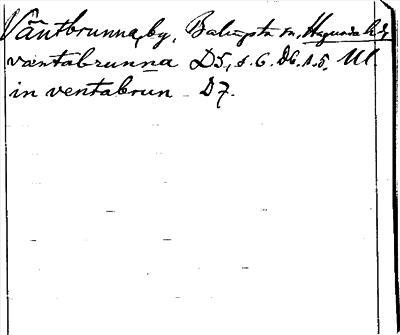 Väntbrunna, by, Balingsta sn, Hagunda hd,
væntabrunna D5, s. 6. D6. s. 5. Ul
in ventabrun D7.